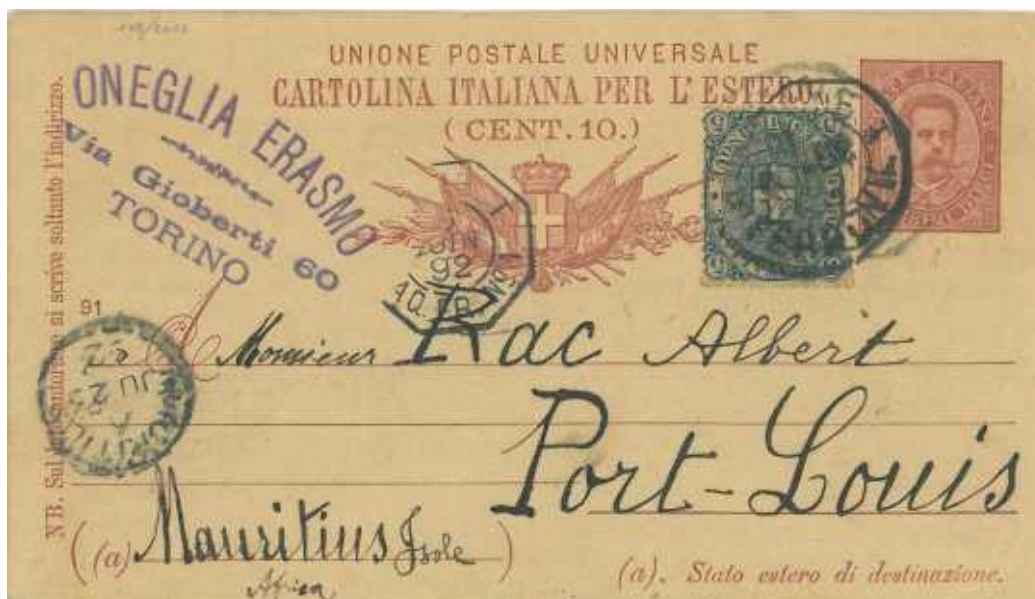 UNIONE POSTALE UNIVERSALE
CARTOLINA ITALIANA PER L'ESTERO
(CENT. 10.)
ONEGLIA ERASMO
Via Gioberti 60
TORINO
NB. Sul si scrive soltanto l'indirizzo.
91
TORINO
92
10
A Monsieur Rac Albert
MAURITIUS
A
JU 23
92
Port-Louis
(a) Mauritius Isole)
Africa
(a). Stato estero di destinazione.